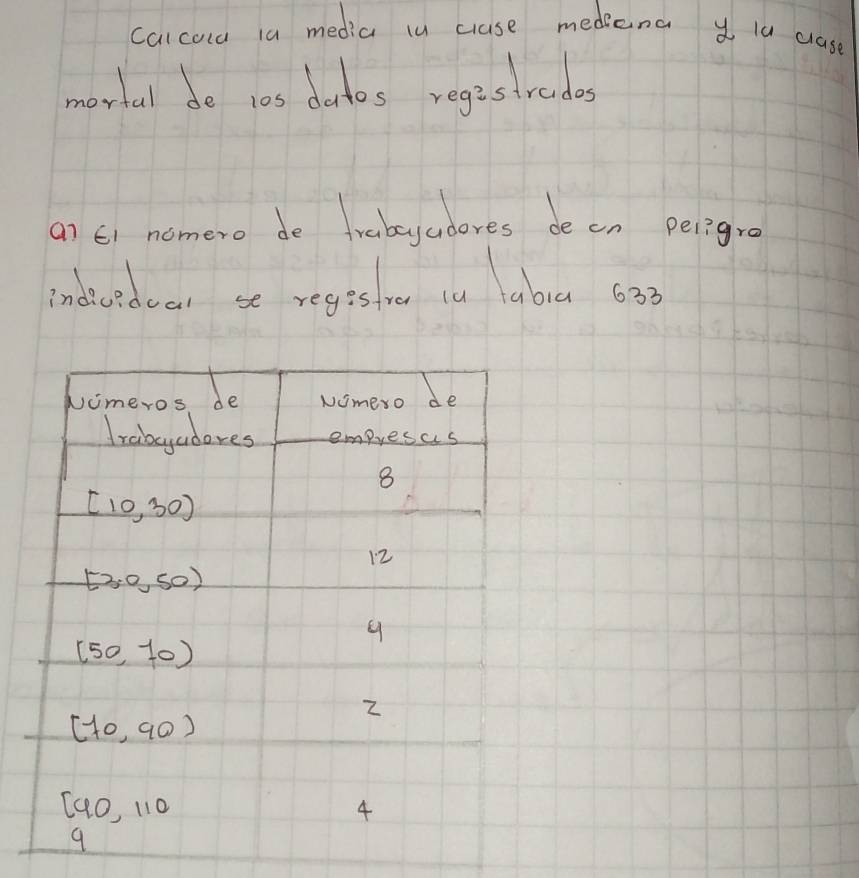 Calcula la media la clase mediana y la clase
mortal de los datos registrados
a) El número de trabayadores de un peligro
individual se registra la tabla 633
Números de
trabayadores
Número de
empresas
[10,30)
8
[30,50)
12
[50,70)
9
[70,90)
2
[90,110
4
9